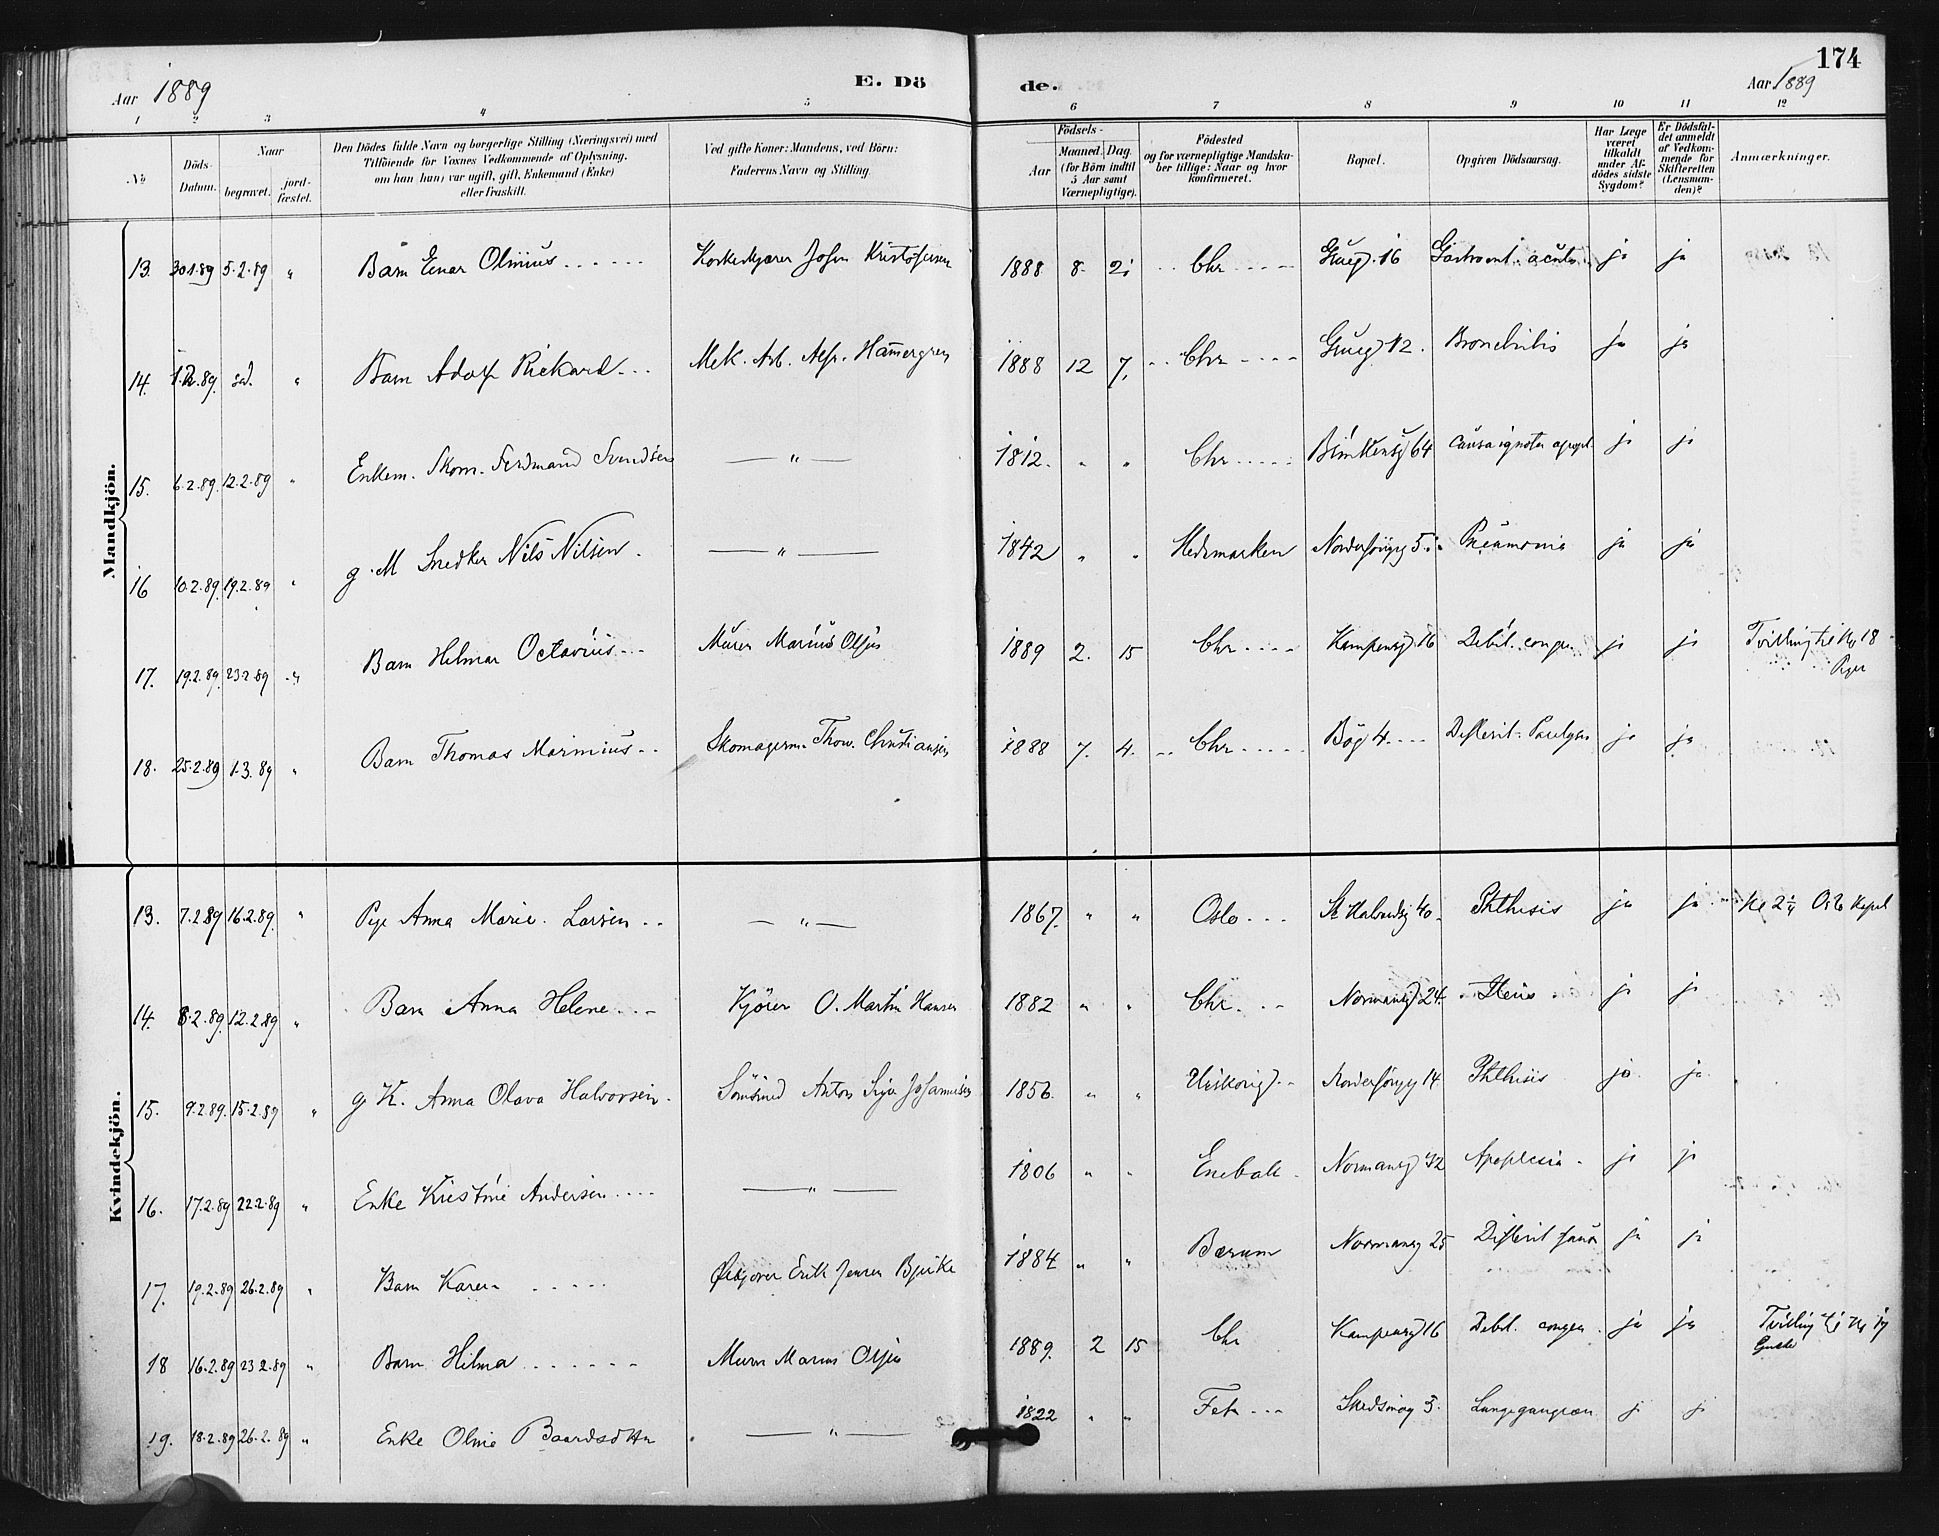 174
Aar 1889 E. Dö de. Aar 1889
1 2 3 4 5 6 7 8 9 10 11 12
No
Döds-Datum.
Naar
begravet.
jord-fæstet.
Den Dödes fulde Navn og borgerlige Stilling (Næringsvei) med
Tilföiende for Voxnes Vedkommende af Oplysning,
om han (hun) var ugift, gift, Enkemand (Enke)
eller fraskilt.
Ved gifte Koner: Mandens, ved Börn:
Faderens Navn og Stilling.
Födsels-
Aar
Maaned. Dag.
(for Börn indtil
5 Aar samt
Værnepligtige).
Födested
og for værnepligtige Mandska-
ber tillige: Naar og hvor
konfirmeret.
Bopæl.
Opgiven Dödsaarsag.
Har Læge
været
tilkaldt
under Af-
dödes sidste
Sygdom?
Er Dödsfal-
det anmeldt
af Vedkom-
mende for
Skifteretten
(Lensman-
den)?
Anmærkninger.
Mandkjön.
13. 30.1.89 5.2.89 " Barn Einar Olinius John Kristofersen 1888 8. 21 Chr Grueg. 16 ja ja
14. 1.2.89. s.d. " Barn Adolf Rickard Mek. Arb. Alfr. Hamergren 1888 12 7. Chr Grueg 12. Bronchitis ja ja
15. 6.2.89. 12.2.89 " Enkem. Skom. Ferdinand Svendsen " 1812. " " Chr 64 Causa ignota apopl. ja ja
16 10.2.89. 19.2.89 " g. M Snedker Nils Nilsen. " 1842 " " Hedemarken Pneumonia ja ja
17. 19.2.89. 23.2.89 " Barn Hilmar Octavius Murer Marius Olsen 1889 2. 15 Chr Kampensg. 16 Debil. congen. ja ja Tvilling til No 18 Piger
18. 25.2.89 1.3.89 " Barn Thomas Marinius Skomagerm. Thorv. Christiansen 1888 7. 4. Chr Bög 4 ja ja
Kvindekjön.
13. 7.2.89 16.2.89. " Pige Anna Marie Larsen " 1867. " " Oslo St Halvardsg 40 Phthisis ja ja Kl 2¼ Oslo Kapel
14. 8.2.89. 12.2.89 " Barn Anna Helene Kjörer O. Martin Hansen 1882 " " Chr. Normansg 24. Ileus ja ja
15. 9.2.89. 15.2.89 " g. K. Anna Olava Halvorsen. Anton Johannesen 1856. " " 14 Phthisis ja ja
16. 17.2.89 22.2.89 " Enke Kristine Andersen " 1806 " " Enebak Normansg 42 Apoplexia ja ja
17. 19.2.89 26.2.89 " Barn Karen Erik Jensen Bjerke 1884 " " Bærum Normansg 25 ja ja
18 16.2.89 23.2.89 " Barn Hilma Murer Marius Olsen 1889. 2 15 Chr Kampensg 16 Debil. congen. ja ja Tvilling til No 17 Gutte
19. 18.2.89 26.2.89 " Enke Oline Baardsdtter " 1822 " " Fet Skedsmog 3. Lungegangræn ja ja